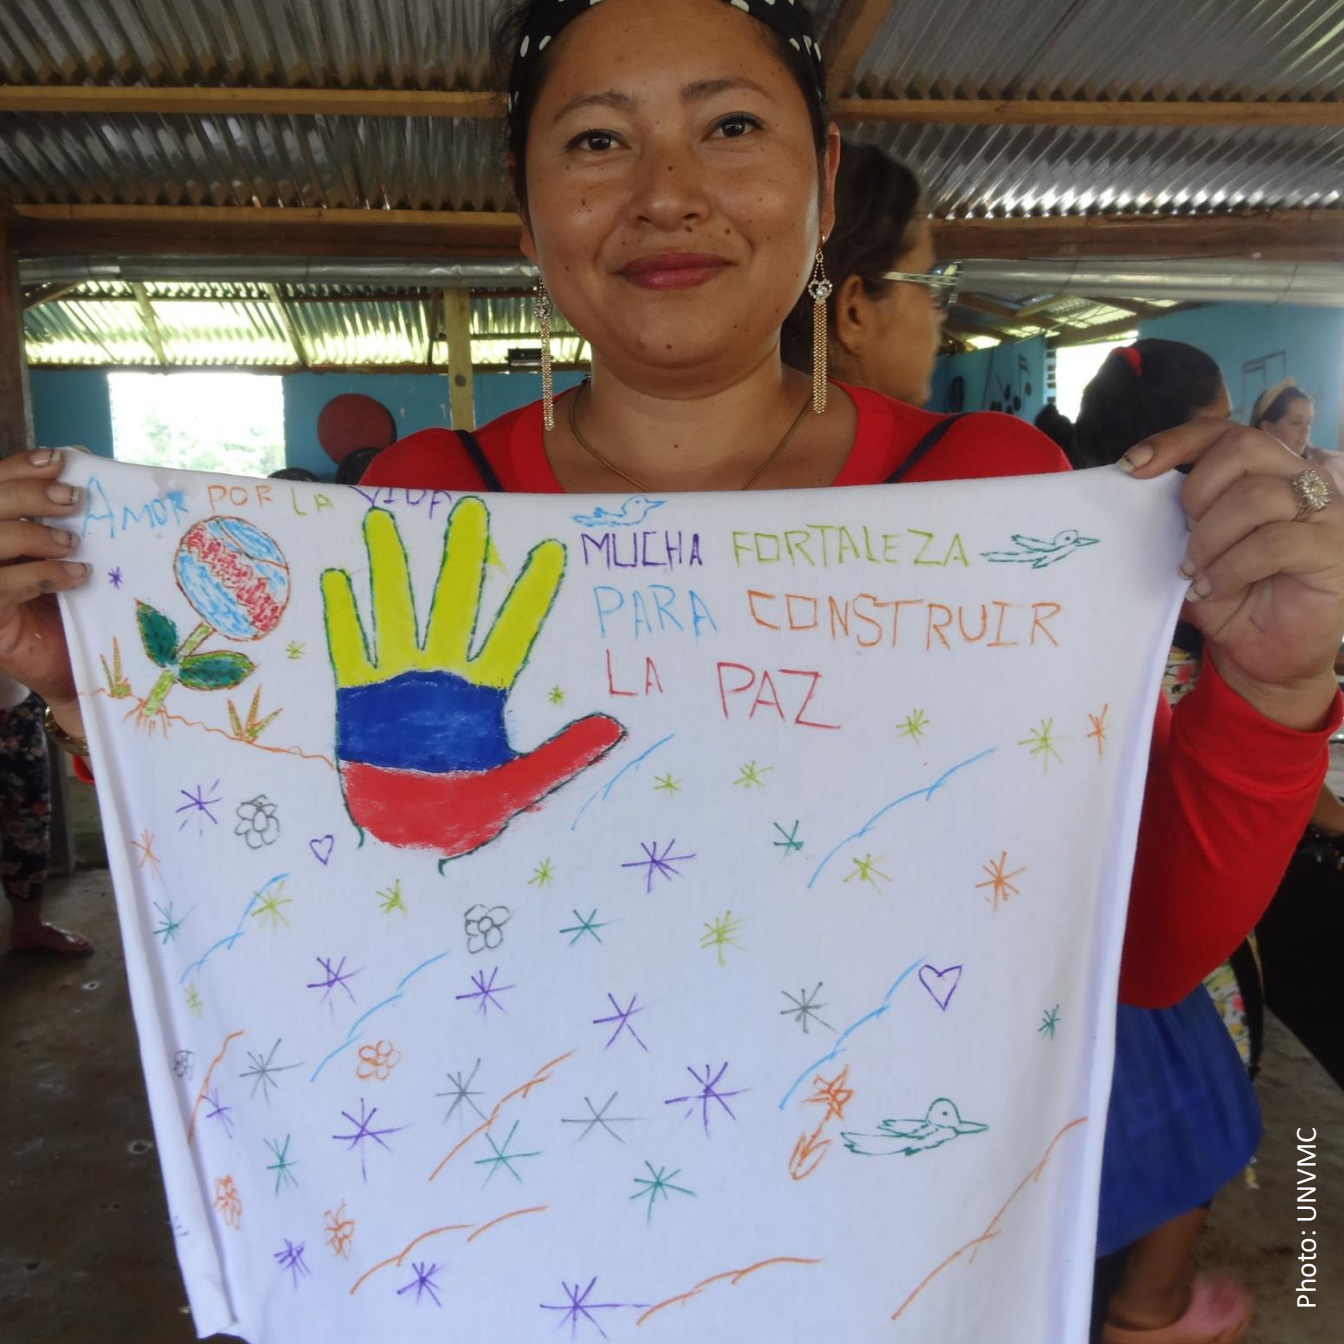 AMOR POR LA VIDA
MUCHA FORTALEZA
PARA CONSTRUIR
LA PAZ
Photo: UNVMC